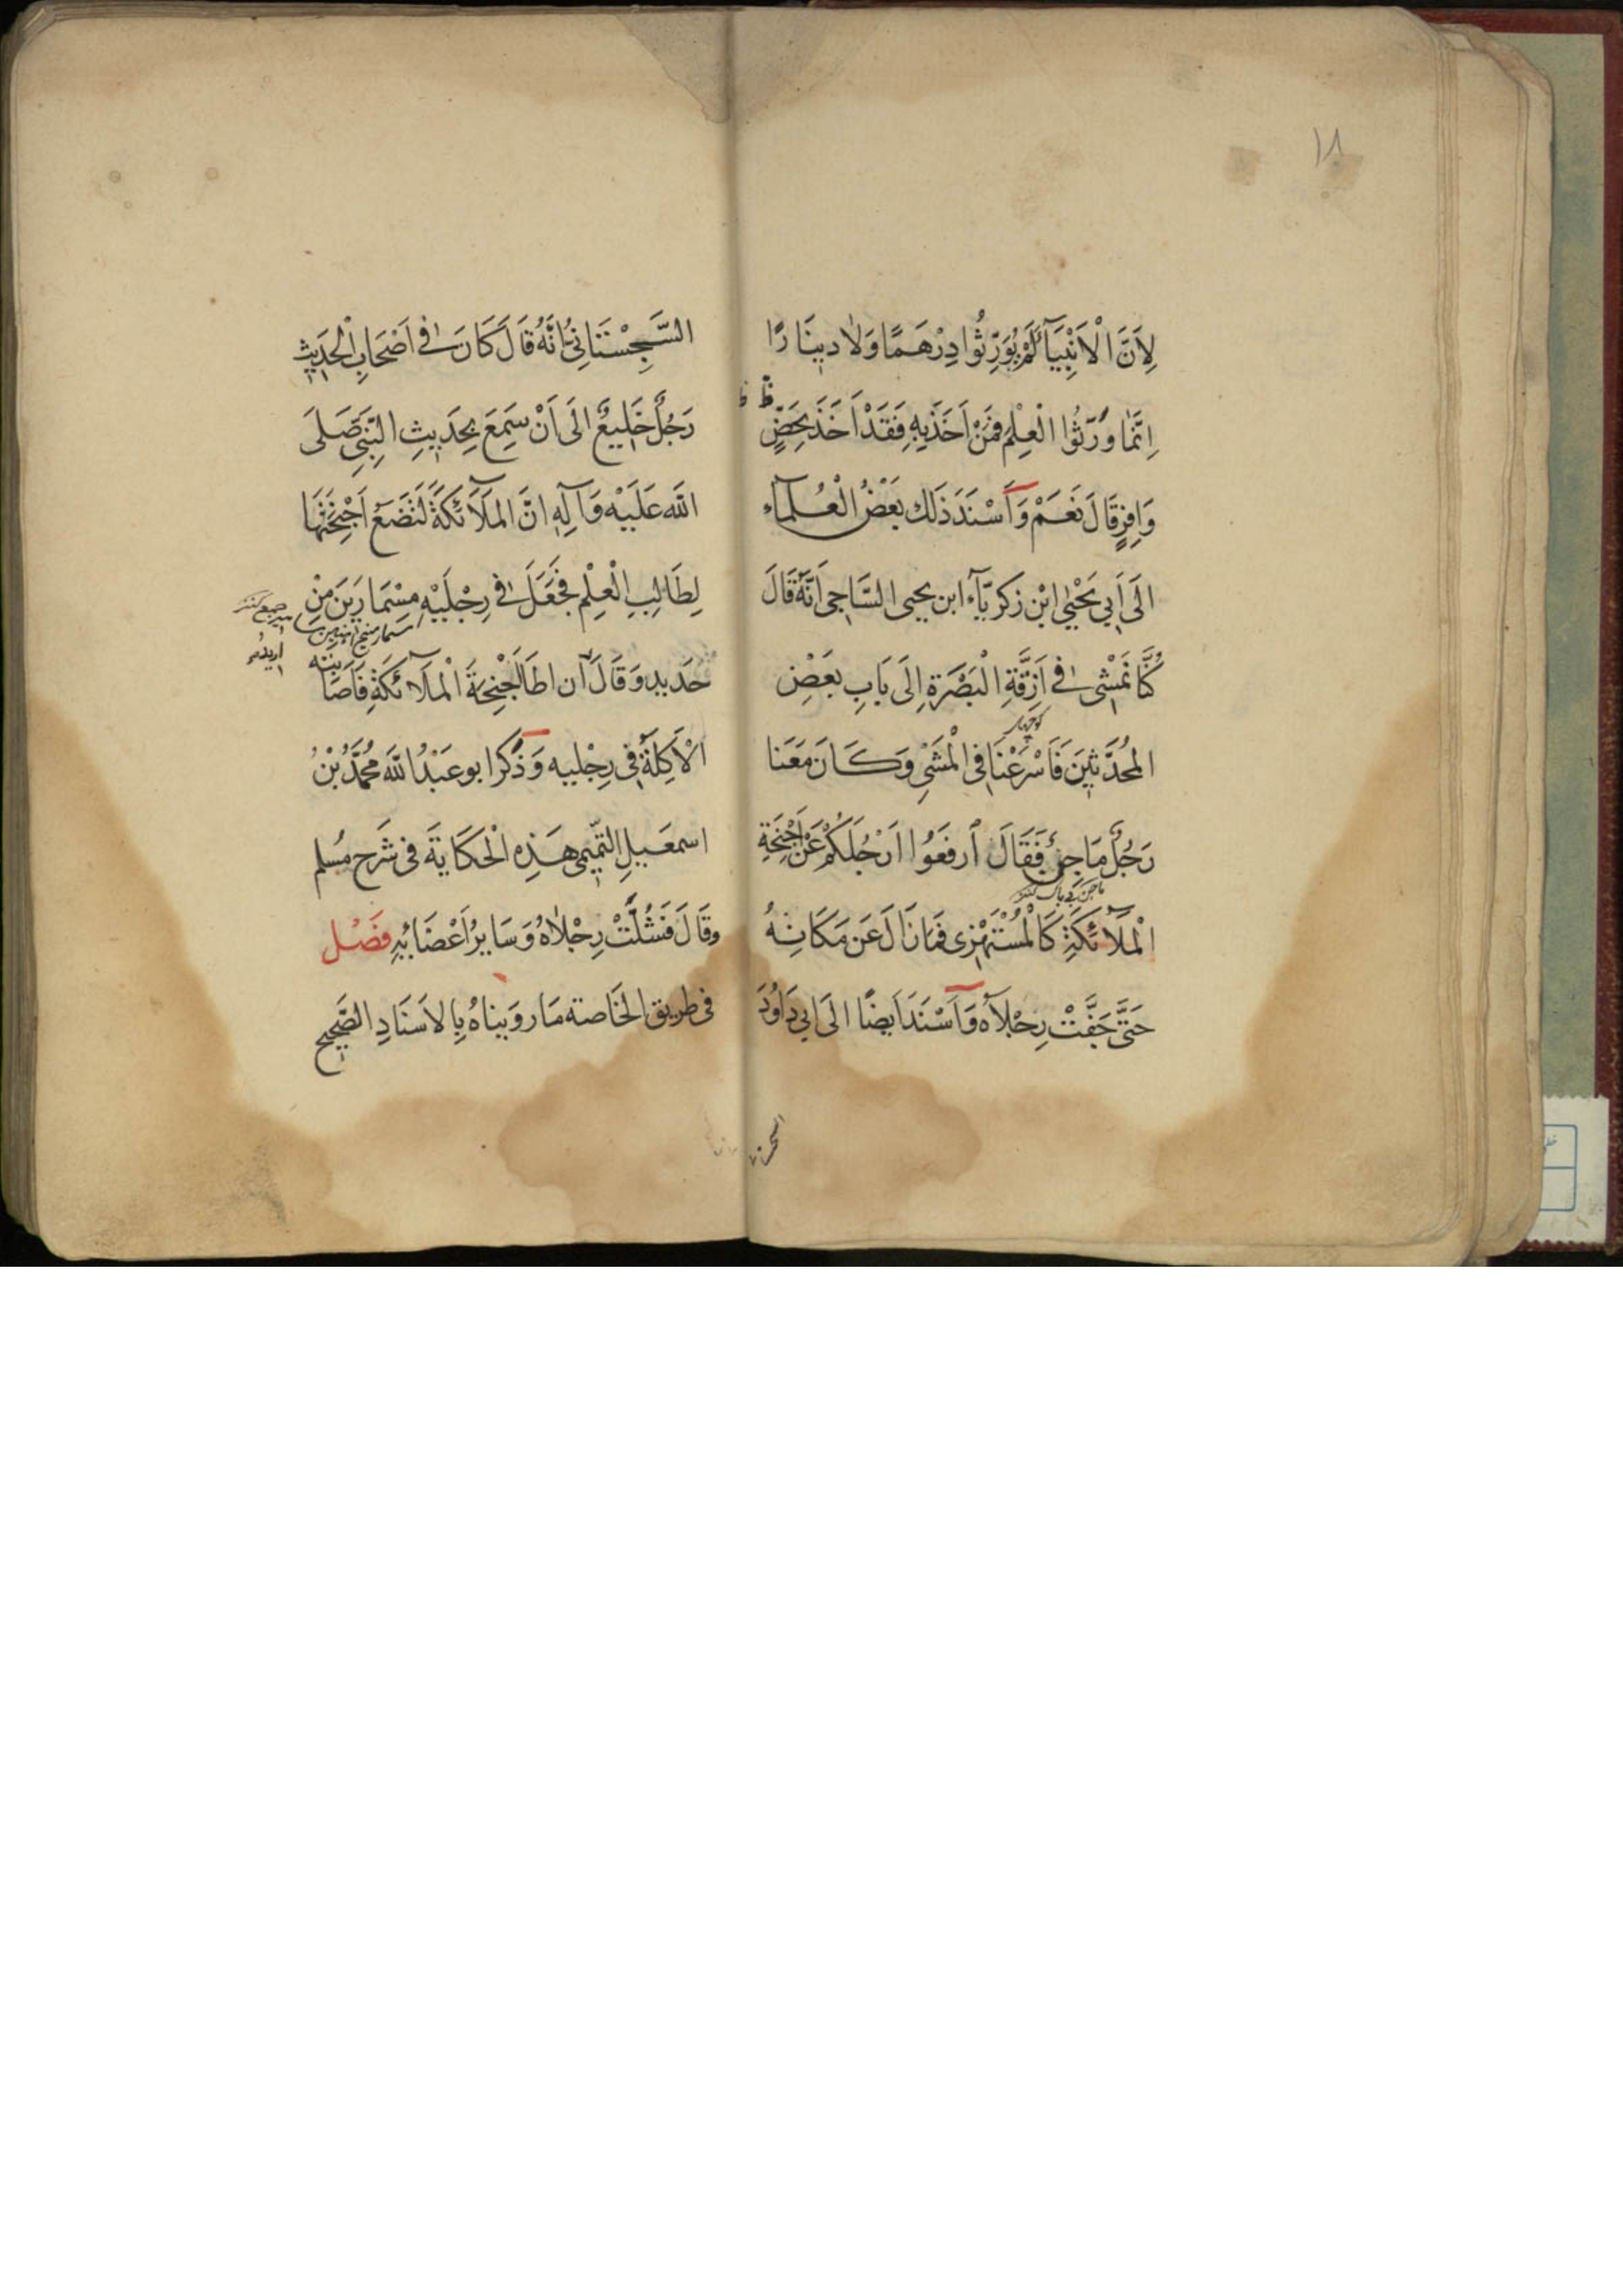 ١٨
لِاَنَّ الْاَنْبِيَآءَ لَمْ يُوَرِّثُوا دِرْهَمًا وَلَا دِينَارًا
اِنَّمَا وَرَّثُوا الْعِلْمَ فَمَنْ اَخَذَ بِهِ فَقَدْ اَخَذَ بِحَضٍّ
وَافِرٍ قَالَ نَعَمْ وَاَسْنَدَ ذَلِكَ بَعْضُ الْعُلَمآءِ
الَى اَبِي يَحْيٰى ابْن زَكَرِيّآءَ ابن يحيى السَّاجِى اَنَّهُ قَالَ
كُنَّا نَمْشِى فِى اَزِقَّةِ الْبَصْرَةِ اِلَى بَابِ بَعْضِ
كوچهاى
المُحَدِّثِينَ فَاَسْرَعْنَا فِى الْمَشْىِ وَكَانَ مَعَنَا
رَجُلٌ مَاجِنٌ فَقَالَ اَرفَعُوا اَرْجُلَكُمْ عَنْ اَجْنِحَةِ
الْمَلَآئكَةِ كَالْمُسْتَهْزِى فَمَا زَالَ عَن مَكَانِهُ
حَتَّى جَفَّتْ رِجْلَاه وَاَسْنَدَ اَيضًا الَى ابي دَاوُدَ
السَّجِسْتَانِىِّ اَنَّهُ قَالَ كَانَ فِى اَصْحَابِ الْحَدِيثِ
رَجُلٌ خَلِيعٌ الَى اَنْ سَمِعَ بِحَدِيثِ النَّبِىِّ صَلَى
اللّه عَلَيْه وَآلِه اِنَّ المَلَآئكَةَ لَتَضَعُ اَجْنِحَتَهَا
لِطَالِبِ الْعِلْمِ فَجَعَلَ فِى رِجْلَيْهِ مِسْمَارَينَ مِنْ
حَدِيدٍ وَقَالَ اُريدُ ان اطَأَ اَجْنِحَةَ الْمَلآئكَةِ فَاَصَابَتْه
الْاَكِلَةُ فِى رِجْليه وَذَكَرَ ابو عَبْدُ اللّه مُحَمَّدُ بْنُ
اسمعيلِ التَّمِيمى هَذِهِ الْحكَايةَ فى شَرحِ مُسلم
وقَالَ فَشُلَّتْ رِجْلَاهُ وَسَايرُ اَعْضَائِهِ فصْل
فى طريق الخَاصة مَا روَيناهُ بِالاسَنَادِ الصَّحِيح